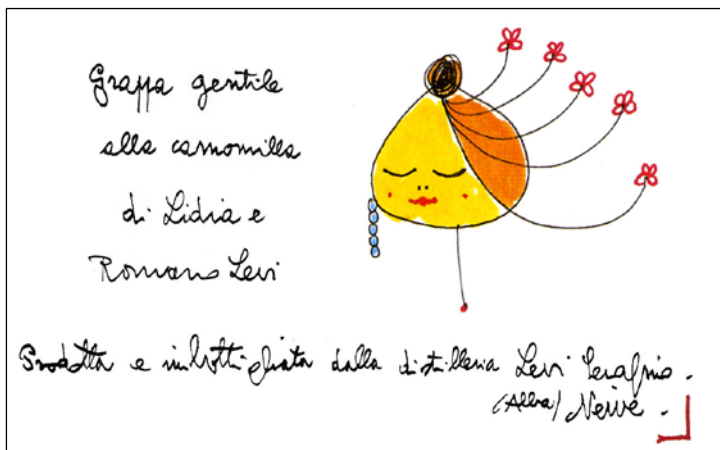 Grappa gentile
alla camomilla
di Lidia e
Romano Levi
Prodotta e imbottigliata dalla distilleria Levi Serafino.
(Alba) Neive.